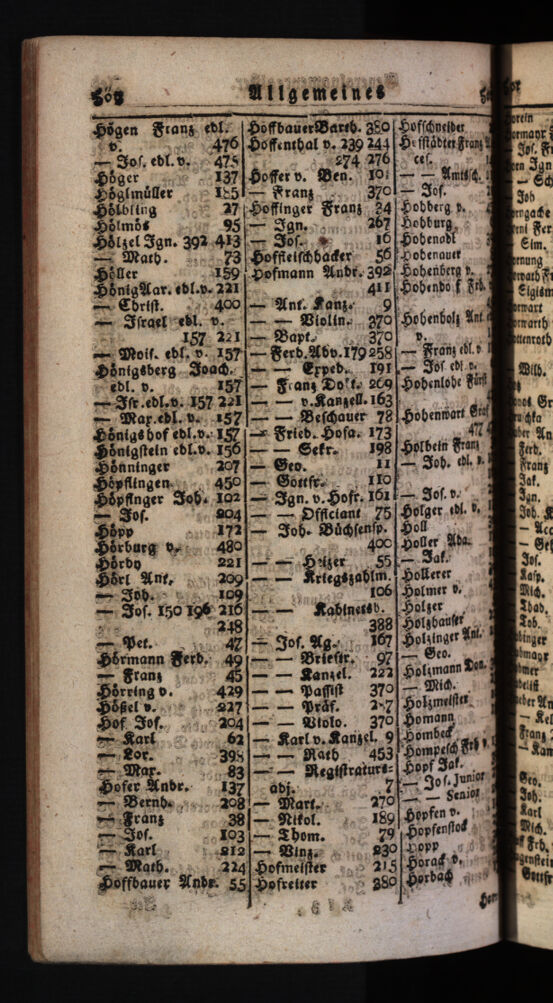 Allgemeines
Högen Franz edl.
v. 476
— Jos. edl. v. 475
Höger 137
Höglmüller 185
Hölbling 27
Hölmös 95
Hölzel Ign. 392 413
— Math. 73
Höller 159
Hönig Aar. edl. v. 221
— Christ. 400
— Israel edl. v.
157 221
— Mois. edl. v. 157
Hönigsberg Joach.
edl. v. 157
— Isr. edl. v. 157 221
— Max. edl. v. 157
Hönigshof edl. v. 157
Hönigstein edl. v. 156
Hönninger 207
Höpflingen 450
Höpflnger Joh. 102
— Jos. 204
Höpp 172
Hörburg v. 480
Hördy 221
Hörl Ant. 209
— Joh. 109
— Jos. 150 196 216
248
— Pet. 47
Hörmann Ferd. 49
— Franz 45
Hörring v. 429
Hößel v. 227
Hof Jos. 204
— Karl 62
— Lor. 398
— Max. 83
Hofer Andr. 137
— Bernh. 208
— Franz 38
— Jos. 103
— Karl 212
— Math. 224
Hoffbauer Andr. 55
Hoffbauer Barth. 380
Hoffenthal v. 239 244
274 276
Hoffer v. Ben. 101
— Franz 370
Hoffinger Franz 34
— Ign. 267
— Jos. 16
Hoffleischhacker 56
Hofmann Andr. 392
411
— Ant. Kanz. 9
— — Violin. 370
— Bapt. 370
— Ferd. Adv. 179 258
— — Exped. 191
— Franz Dokt. 269
— — v. Kanzell. 163
— — Beschauer 78
— Fried. Hofa. 173
— — Sekr. 198
— Geo. 11
— Gottfr. 110
— Ign. v. Hofr. 161
— — Officiant 75
— Joh. Büchsensp.
400
— — Heizer 55
— — Kriegszahlm.
106
— — Kabinetsd.
388
— Jos. Ag. 167
— — Brieftr. 97
— — Kanzel. 222
— — Passist 370
— — Präf.
— — Violo. 370
— Karl v. Kanzel. 9
— — Rath 453
— — Registraturs-
adj. 7
— Mart. 270
— Nikol. 189
— Thom. 79
— Vinz. 230
Hofmeister 215
Hofreiter 380
Hofschneider
Hofstädter Franz
— — Amtsch.
— Jos.
Hohberg v.
Hohburg
Hohenadl
Hohenauer
Hohenberg v.
Hohenholz Ant.
v.
— Franz edl. v.
— Jos. edl. v.
Hohenlohe Fürst
Hohenwart Graf
477
Holbein Franz
— Joh. edl. v.
— Jos. v.
Holger edl. v.
Holl
Holler Ada.
— Jak.
Hollerer
Holmer v.
Holzer
Holzhauser
Holzinger Ant.
— Geo.
Holzmann Don.
— Mich.
Holzmeister
Homann
Hombeck
Hompesch Frh. v.
Hopf Jak.
— Jos. Junior
— — Senior
Hopfen v.
Hopfenstock
Hopp
Horack v.
Horbach